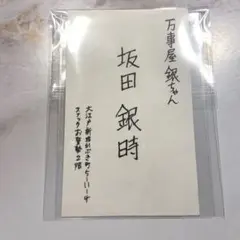 万事屋 銀ちゃん
坂田 銀時
大江戸新宿かぶき町ろ-1-1-4
スナックお登勢2階